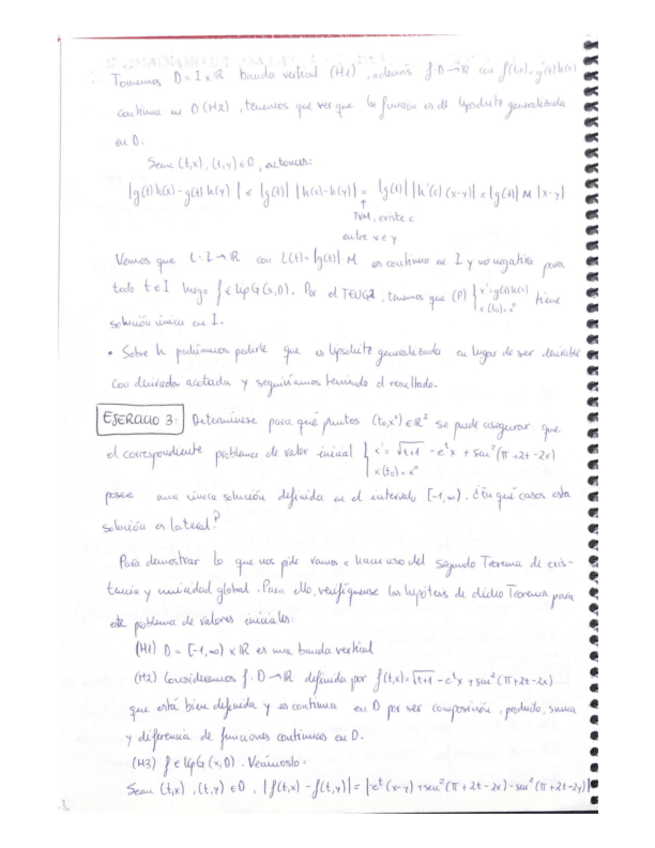 Tomemos D = I x ℝ banda vertical (H1), además f: D → ℝ con f(t,x) = g(t)h(x)
continua en D (H2), tenemos que ver que la función es de lipschitz generalizada
en D.
Sean (t,x), (t,y) ∈ D, entonces:
|g(t)h(x) - g(t)h(y)| ≤ |g(t)| |h(x) - h(y)| = |g(t)| |h'(c)(x-y)| ≤ |g(t)| M |x-y|
↑
TVM, existe c
entre x e y
Vemos que L: I → ℝ con L(t) = |g(t)|·M es continua en I y no negativa para
todo t ∈ I luego f ∈ Lip G(x,D). Por el TEUG2, tenemos que (P) { x' = g(t)h(x)
x(t₀) = x⁰ tiene
solución única en I.
• Sobre h podríamos pedirle que es lipschitz generalizada en lugar de ser derivable
con derivada acotada y seguiríamos teniendo el resultado.
EJERCICIO 3: Determínese para qué puntos (t₀,x⁰) ∈ ℝ² se puede asegurar que
el correspondiente problema de valor inicial { x' = √t+1 - eᵗx + sen²(π + 2t - 2x)
x(t₀) = x⁰
posee una única solución definida en el intervalo [-1,∞). ¿En qué casos esta
solución es lateral?
Para demostrar lo que nos pide vamos a hacer uso del segundo Teorema de exis-
tencia y unicidad global. Para ello, verifíquense las hipótesis de dicho Teorema para
este problema de valores iniciales:
(H1) D = [-1,∞) x ℝ es una banda vertical
(H2) Consideramos f: D → ℝ definida por f(t,x) = √t+1 - eᵗx + sen²(π + 2t - 2x)
que está bien definida y es continua en D por ser composición, producto, suma
y diferencia de funciones continuas en D.
(H3) f ∈ Lip G(x,D). Veámoslo:
Sean (t,x), (t,y) ∈ D, |f(t,x) - f(t,y)| = |-eᵗ(x-y) + sen²(π + 2t - 2x) - sen²(π + 2t - 2y)|